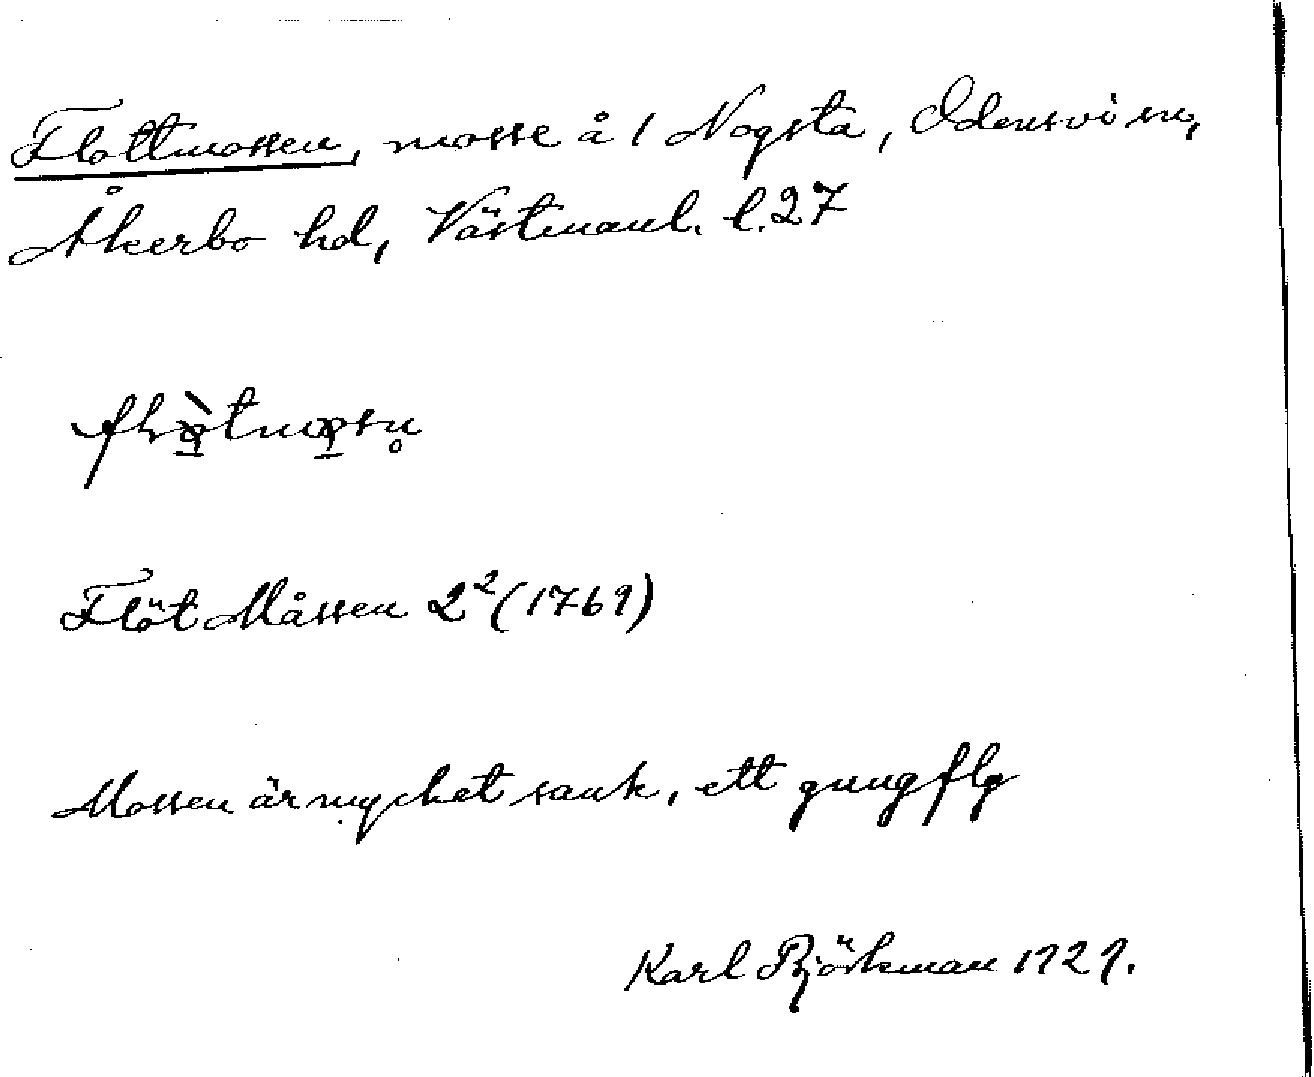 Flottmossen, mosse å 1 Nogsta, Odensvi sn,
Åkerbo hd, Västmanl. l. 27
Flöt Måssen 2² (1769)
Mossen är mycket sank, ett gungfly
Karl Björkman 1929.